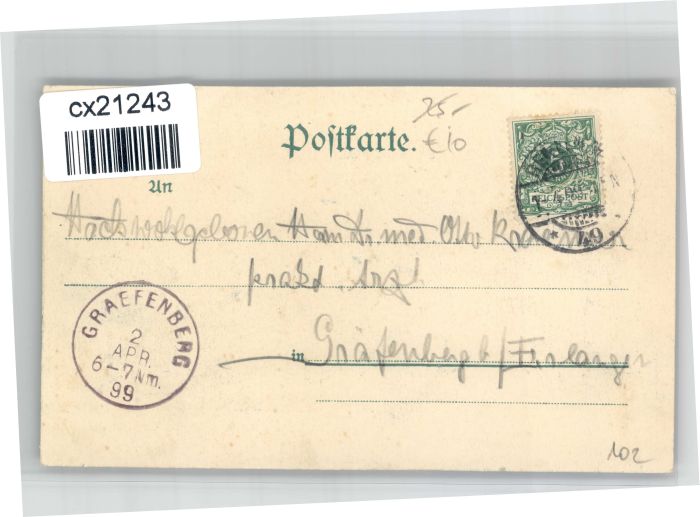 cx21243
25.-
€10
Postkarte.
An
Hochwohlgeboren Herrn Dr. med Otto
prakt. Arzt
in Gräfenberg b/ Erlangen
REICHSPOST
49
GRAEFENBERG
2
APR.
6-7 Nm.
99
102